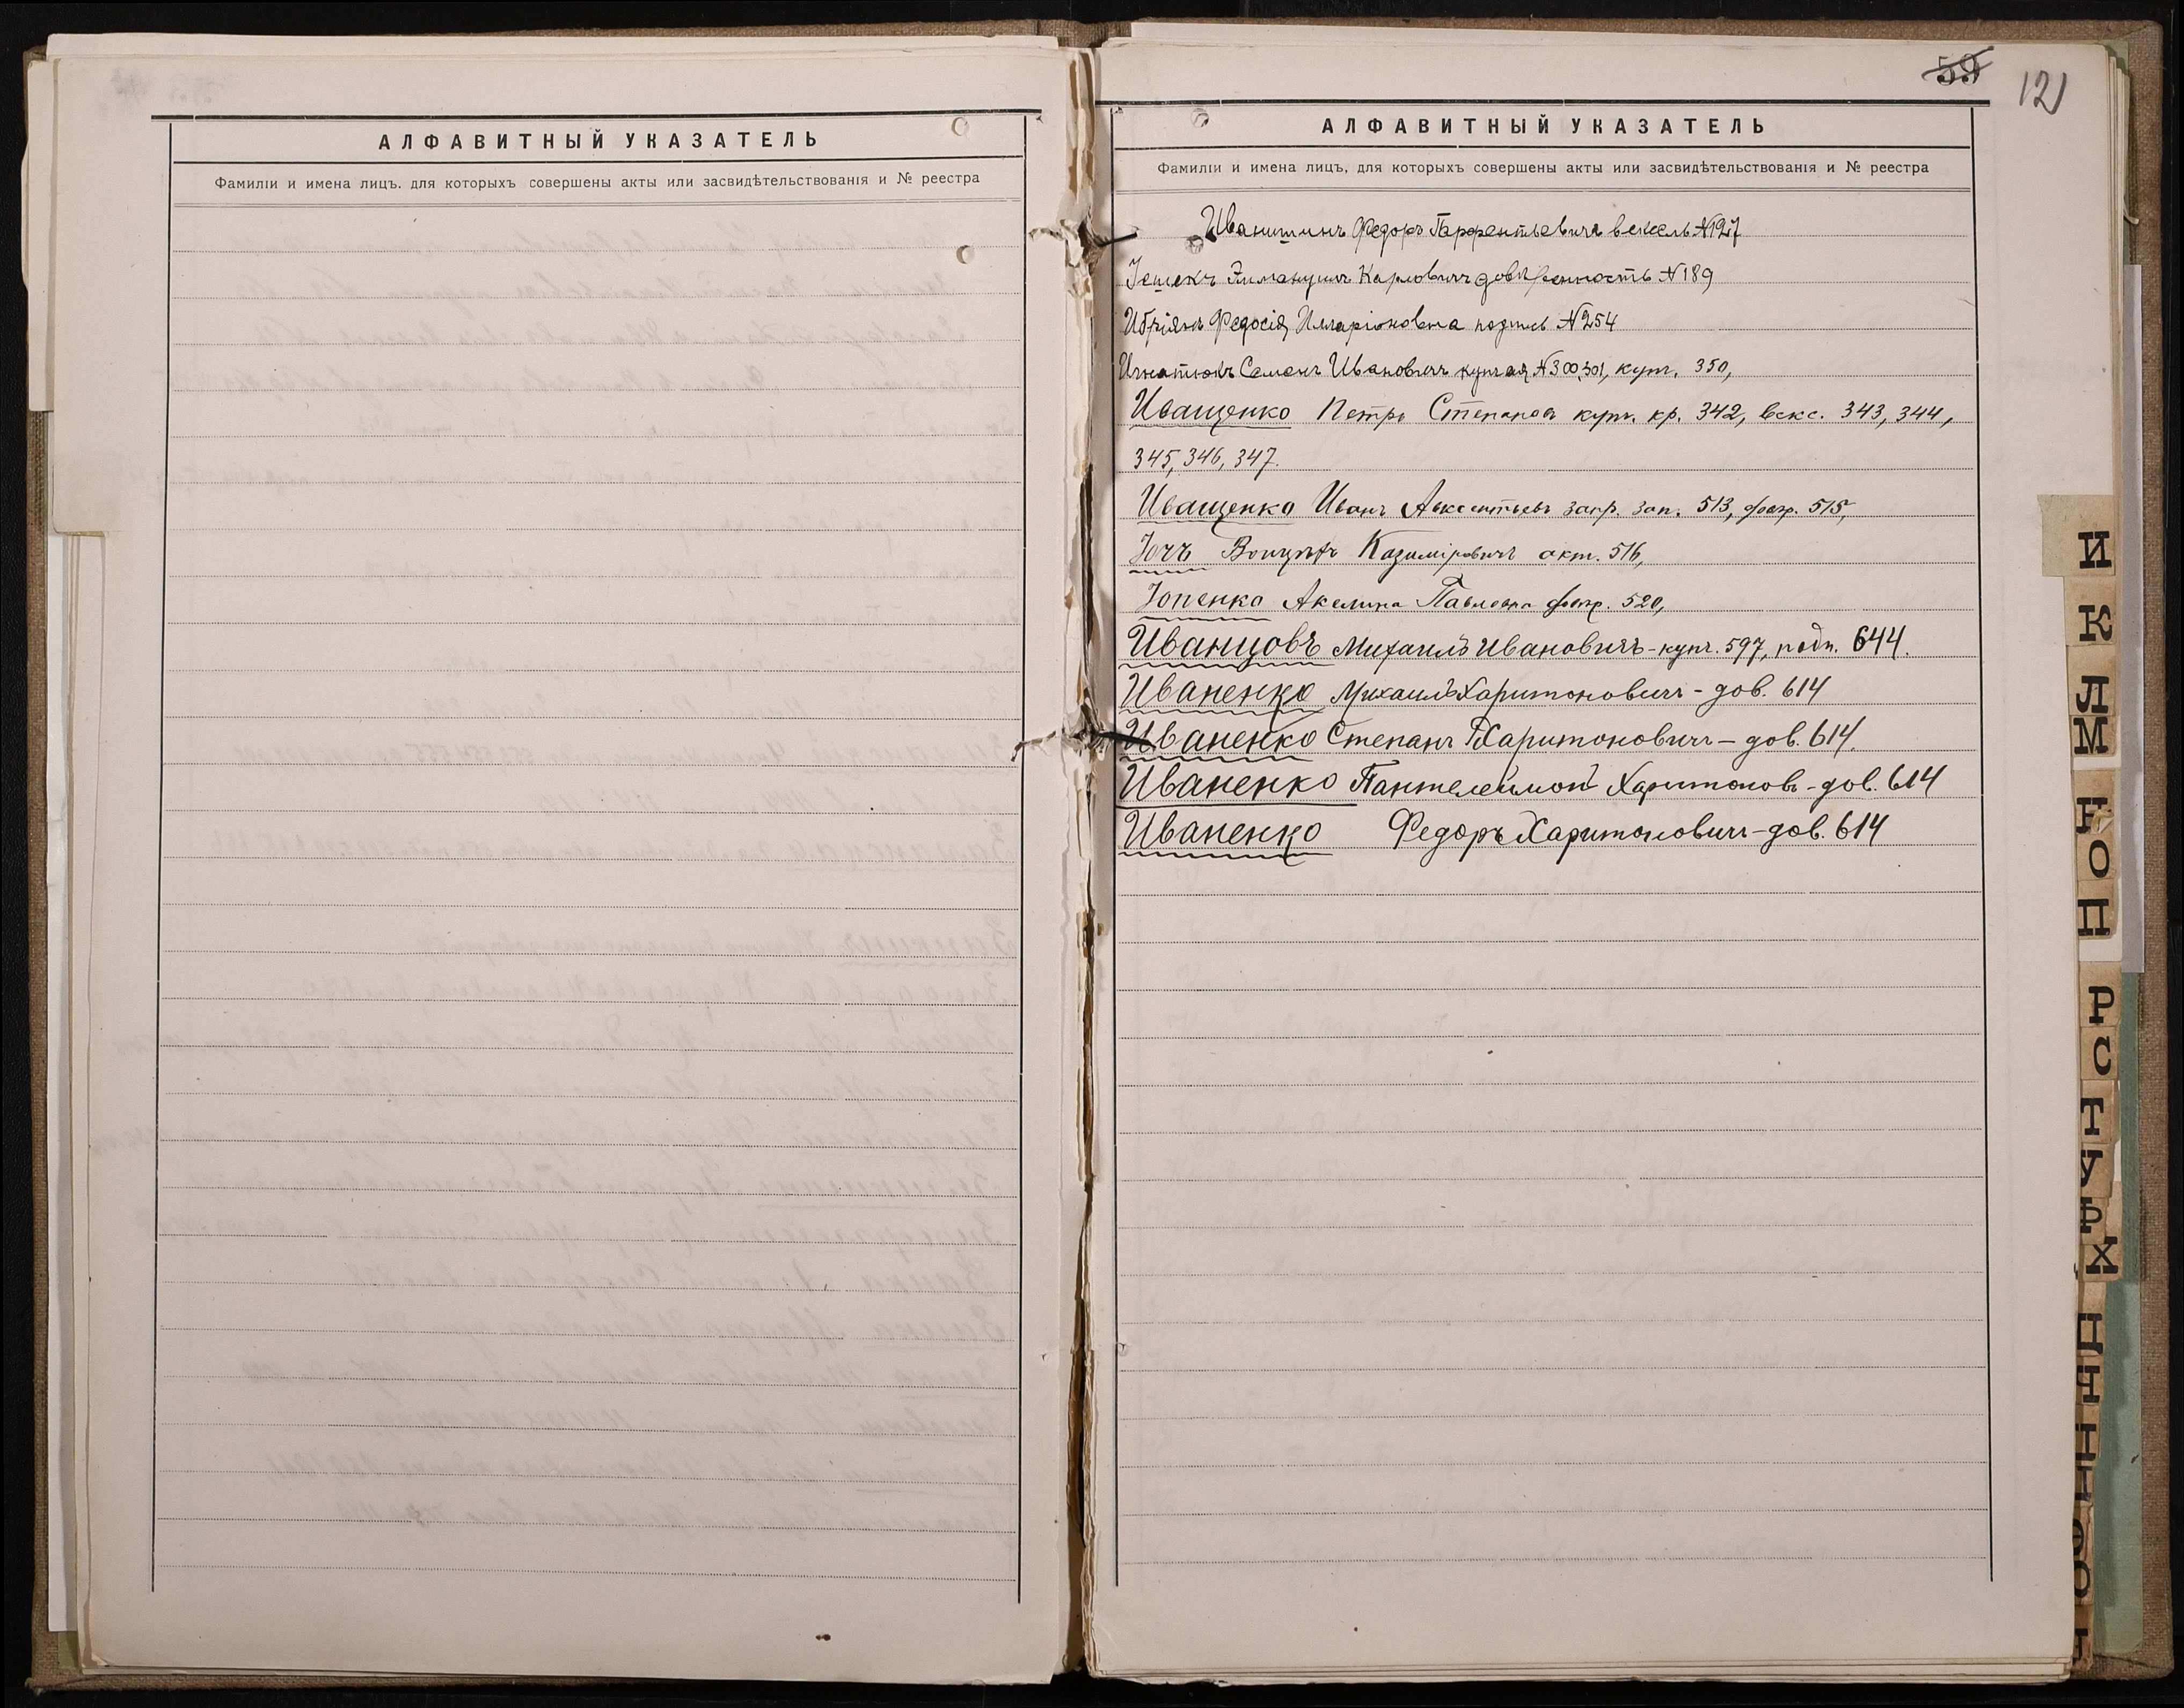 АЛФАВИТНЫЙ УКАЗАТЕЛЬ
Фамиліи и имена лицъ. для которыхъ совершены акты или засвидѣтельствованія и № реестра
59 121
АЛФАВИТНЫЙ УКАЗАТЕЛЬ
Фамиліи и имена лицъ, для которыхъ совершены акты или засвидѣтельствованія и № реестра
Иванишинъ Федоръ Парфентьевичъ вексель №127
Іешекъ Эммануилъ Карловичъ довѣренность №189
Ибріянъ Федосія Илларіоновна подпись №254
Игнатюкъ Семенъ Ивановичъ купчая №300,301, купч. 350,
Иващенко Петръ Степановъ купч. кр. 342, векс. 343, 344,
345, 346, 347.
Иващенко Иванъ Авксентьевъ запр. зап. 513, 515,
Іочъ Казиміровичъ акт. 516,
Іопенко Акелина Павловна 520,
Иванцовъ Михаилъ Ивановичъ - купч. 597, подп. 644.
Иваненко Михаилъ Харитоновичъ - дов. 614
Иваненко Степанъ Харитоновичъ - дов. 614.
Иваненко Пантелеимонъ Харитоновъ - дов. 614
Иваненко Федоръ Харитоновичъ - дов. 614
И
К
Л
М
Н
О
П
Р
С
Т
У
Ф
Х